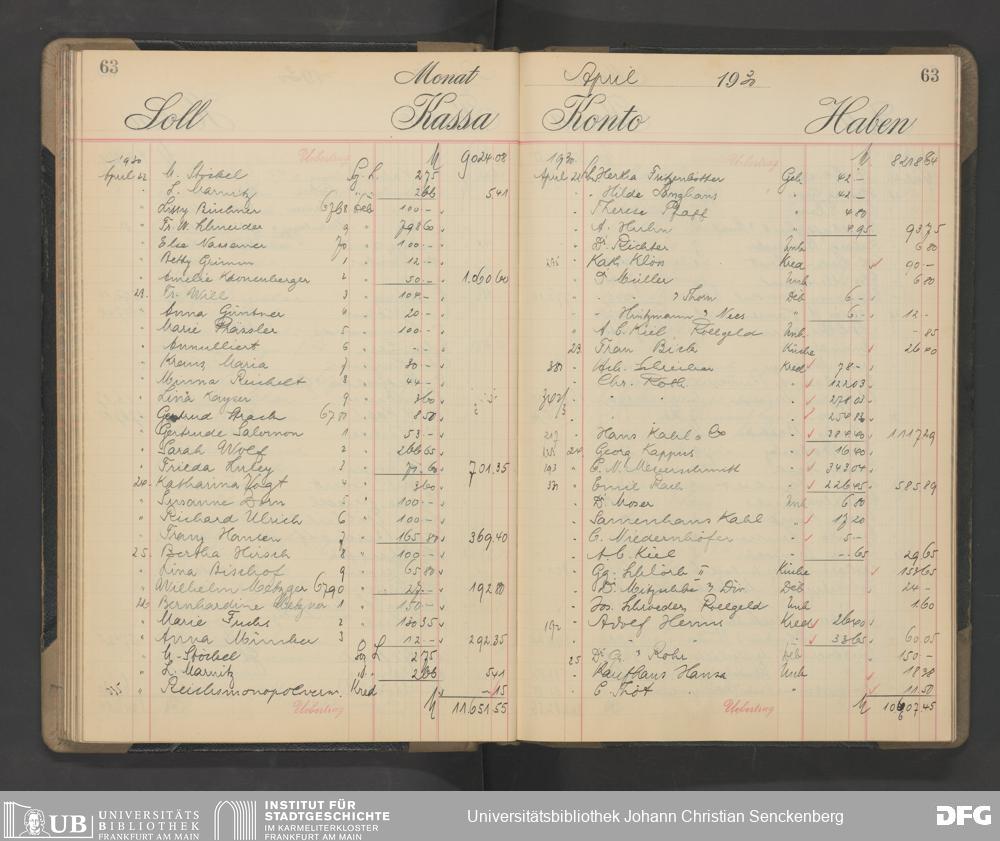 63
Monat
Soll Kassa
1930 Uebertrag M 9024.08
April 22. M. Stöckel Sg. L 2.75
" L. Marnitz " 2.66 5.41
" Lissy Büchner 6768 Deb 100.–
" Fr. W. Schneider 9 " 798 60
" Else Nassauer 70 " 100.–
" Betty Grimm 1 " 12.–
" Amelie Kronenberger 2 " 50.– 1060 60
23. Fr. Will 3 " 104.–
" Anna Güntner 4 " 20.–
" Marie 5 " 100.–
" Annulliert 6 " – –
" Kranz Maria 7 " 30.–
" Minna Reichelt 8 " 44.–
" Lina Kayser 9 " 3 60
" Gertrud 6780 " 8 50
" Gertrude Salomon 1 " 53.–
" Sarah Wolf 2 " 266 65
" Frieda 3 " 701.35
24. Katharina Vogt 4 " 3 60
" Susanne Dorn 5 " 100.–
" Richard Ulrich 6 " 100.–
" Franz Hansen 7 " 165.80 369.40
25. Bertha Hirsch 8 " 100.–
" Lina Bischof 9 " 65 80
" Wilhelm Metzger 6790 " 27.– 192 80
26. Bernhardine Metzger 1 " 150.–
" Marie Fuchs 2 " 130 35
" Anna 3 " 12.– 292.35
" M. Stöckel Sg. L 2.75
" L. Marnitz " 2 66 5 41
" Kred – 15
Uebertrag M 11651.55
April 1930
63
Konto Haben
1930. Uebertrag M 8218 64
April 22. Herta Geh. 42.–
" Hilde Langhans " 42.–
" Therese Pfaff " 4.80
" A. " 4.95 93.75
" Dr. Richter Unk 6 80
Kath. Klös Kred 90.–
" D. Müller Unk 6 80
" " & Thorn Deb 6.–
" Hintzmann & Nees " 6.– 12.–
" A. C. Kiel Rollgeld Unk. – 85
23. Frau Küche 26 40
" Schreiber Kred 78.–
" Chr. Roth " 122 03
" " 271 03
" 254 83
217 " Hans Kahl & Co " 1117 29
24. Georg Kappus " 16 40
193 " C. N. Meyerschmitt " 343 04
" Emil " 226 45 585.89
" Dr. Moser Unk 6 80
" Samenhaus Kahl " 17 20
" C. Niedernhöfer " 5.–
" A. C. Kiel " – 65 29 65
" Küche 158 65
" Deb 24.–
" Jos. Rollgeld Unk 1 60
192 " Adolf Kred 26 40
" " 33 65 60.05
25. Deb 150.–
" Kaufhaus Hansa Unk 18 38
" C. Thöt " 11.50
Uebertrag M 10607.45
UB UNIVERSITÄTS
BIBLIOTHEK
FRANKFURT AM MAIN
INSTITUT FÜR
STADTGESCHICHTE
IM KARMELITERKLOSTER
FRANKFURT AM MAIN
Universitätsbibliothek Johann Christian Senckenberg
DFG